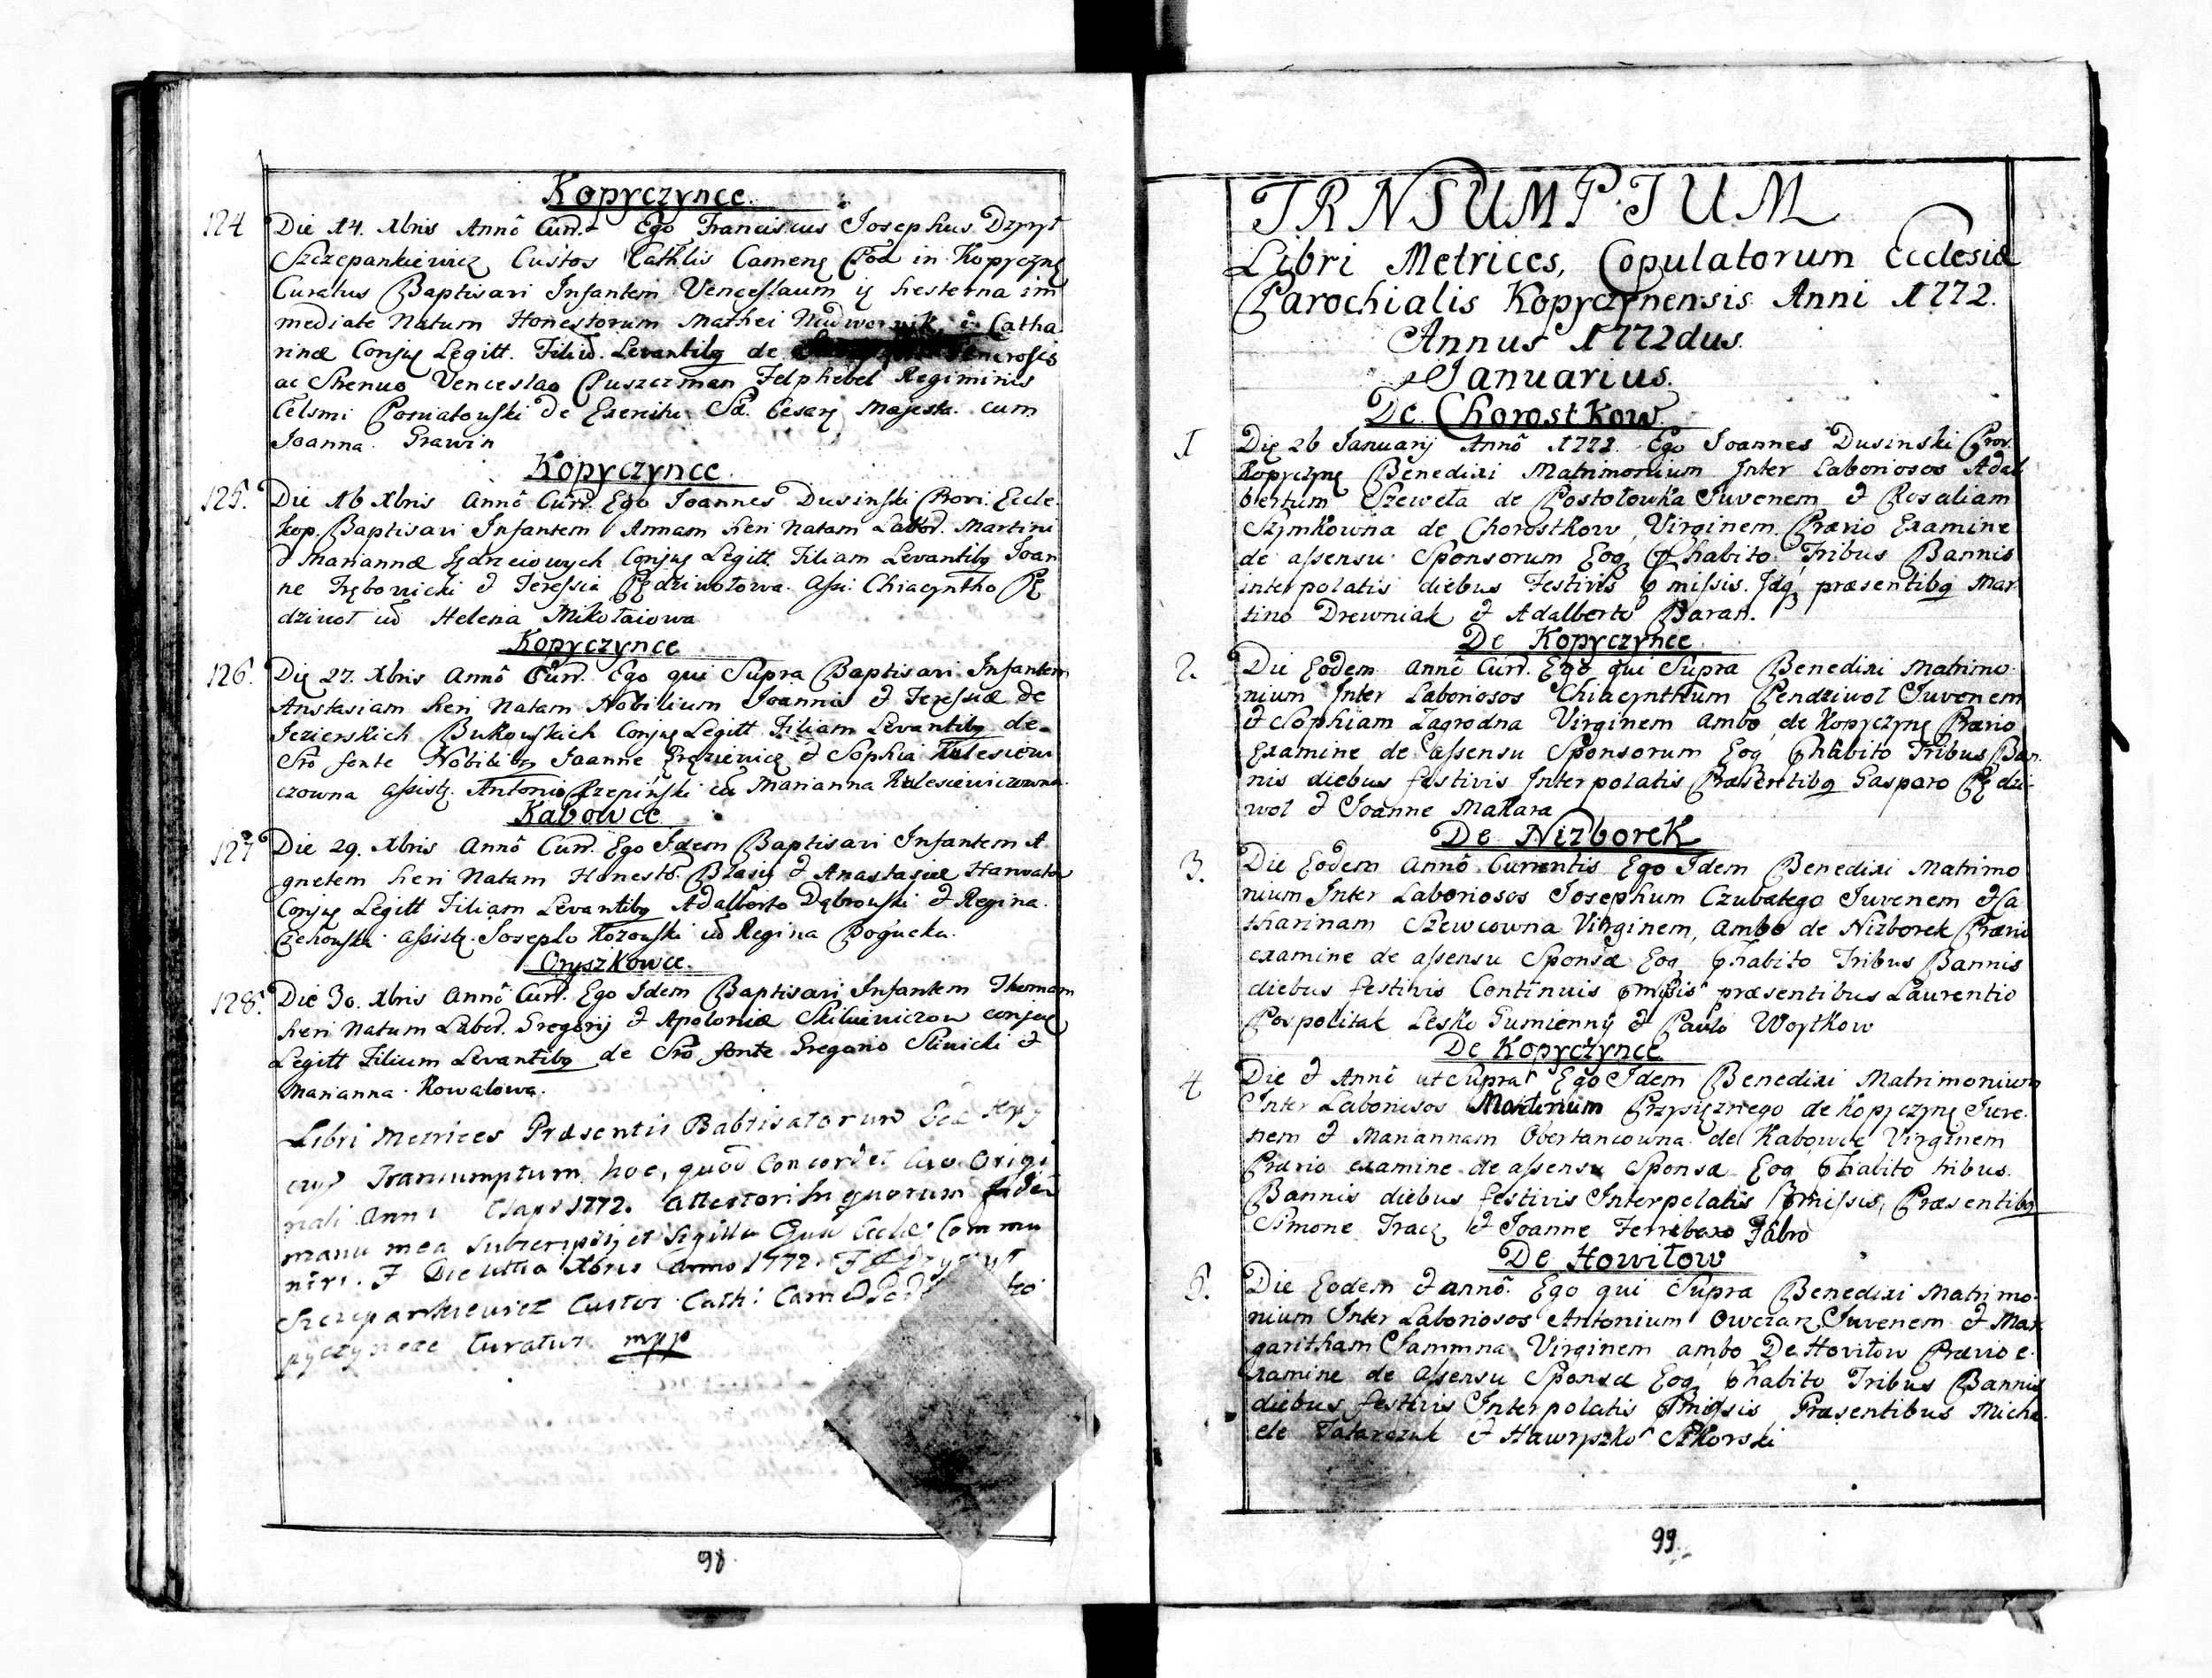 Kopyczynce.
124 Die 14. Xbris Annô Curr. Ego Franciscus Josephus Dzyryt
Szczepankiewicz Custos Cathlis Camene Pod in Kopyczyn
Curatus Baptisavi Infantem Venceslaum hesterna im
mediate Natum Honestorum Mathei Nadwornik & Catha
rinæ Conjug Legitt. Filiū. Levantibq de Generosis
ac Strenuo Venceslao Puszczman Felphebel Regiminis
Celsmi Poniatowski de Exercitu Sæ. Cesarj Majesta. cum
Joanna Grawin
Kopyczynce.
125. Die 16 Xbris Annô Curr. Ego Joannes Dusinski Provi. Eccle.
kop. Baptisavi Infantem Annam heri Natam Labor. Martini
& Mariannæ Jędrzeiowych Conjug Legitt. Filiam Levantibq Joan
ne Trębowicki & Teressia Pędziwołowa. Assi. Chiacyntho Pę
dziwoł cū Helena Mikołaiowa
Kopyczynce
126. Die 27. Xbris Annô Curr. Ego qui Supra Baptisavi Infantem
Anstasiam heri Natam Nobilium Joannis & Teressiæ de
Jezierskich Bukowskich Conjug Legitt Filiam Levantibq de
Srô fonte Nobilibq Joanne & Sophia Kulesiewi
czowna assistq. Antonio Rzepiński cū Marianna Kulesiewiczowna
Kabowce
127 Die 29. Xbris Annô Curr. Ego Idem Baptisavi Infantem A
gnetem heri Natam Honestô. Blasij & Anastasiæ
Conjug Legitt Filiam Levantibq Adalberto Dąbrowski & Regina
Czehowska assistq. Josepho Kozowski cū Regina Bogucka.
Oryszkowce.
128. Die 30. Xbris Annô Curr. Ego Idem Baptisavi Infantem Thomam
heri Natum Labor. Gregorij & Apoloniæ conjug
Legitt Filium Levantibq de Srô fonte Gregorio Sliwicki &
Marianna Kowalowa.
Libri Metrices Præsentis Babtisatorum Ecclæ Kopy
czyn Transumptum hoc, quod Concordet suo Origi
nali Anni 1772. attestor in quorum fidem
manu mea Subscripsi, et Sigillo Ecclæ Commu
nivi. Die ultia Xbris Anno 1772.
Szczepankiewicz Custos Cath: Cam
pyczyncæ Curatus mpp
98
TRNSUMPTUM
Libri Metrices, Copulatorum Ecclesiæ
Parochialis Kopyczynensis Anni 1772.
Annus 1772dus.
Januarius.
De Chorostkow.
1 Die 26 Januarij Annô 1772. Ego Joannes Dusinski Prov.
Kopyczyn Benedixi Matrimonium Inter Laboriosos Adal
bertum Szeweła de Postołowka Juvenem & Rosaliam
Szymkowna de Chorostkow, Virginem. Prævio Examine
de assensu Sponsorum Eoq Phabito, Tribus Bannis
interpolatis diebus Festivis pmissis. Idq præsentibq Mar
tino Drewniak & Adalberto Baran.
De Kopyczynce.
2. Die Eodem Annô Curr. Ego qui Supra Benedixi Matrimo
nium Inter Laboriosos Chiacynthum Pendziwoł Juvenem
& Sophiam Zagrodna Virginem Ambo de Kopyczyn Prævio
Examine de assensu Sponsorum Eoq Phabito Tribus Ban
nis diebus festivis Interpolatis Præsentibq Gasparo Pędzi-
woł & Joanne Makara
De Nizborek
3. Die Eodem Annô Currentis Ego Idem Benedixi Matrimo
nium Inter Laboriosos Josephum Czubatego Juvenem & Ca
tharinam Szewcowna Virginem, Ambo de Nizborek Prævio
examine de assensu Sponsæ Eoq Phabito Tribus Bannis
diebus festivis Continuis pmissis præsentibus Laurentio
Pospolitak Lesko Gumienny & Pavlo Woytkow
De Kopyczynce
4 Die & Annô ut Supra Ego Idem Benedixi Matrimonium
Inter Laboriosos Martinum Przysięznego de Kopyczyn Juve-
nem & Mariannam Obertancowna de Kabowce Virginem
Prævio examine de assensu Sponsæ Eoq Phabito tribus
Bannis diebus festivis Interpolatis Pmissis, Præsentibq
Simone Tracz & Joanne Fabro
De Howiłow
5. Die Eodem & annô. Ego qui Supra Benedixi Matrimo-
nium Inter Laboriosos Antonium Owczarz Juvenem & Mar
garitham Virginem ambo De Howiłow Prævio e-
xamine de Assensu Sponsæ Eoq Phabito Tribus Bannis
diebus festivis Interpolatis Pmissis Præsentibus Micha
ele Tatarczuk & Hawryszko Sikorski
99.